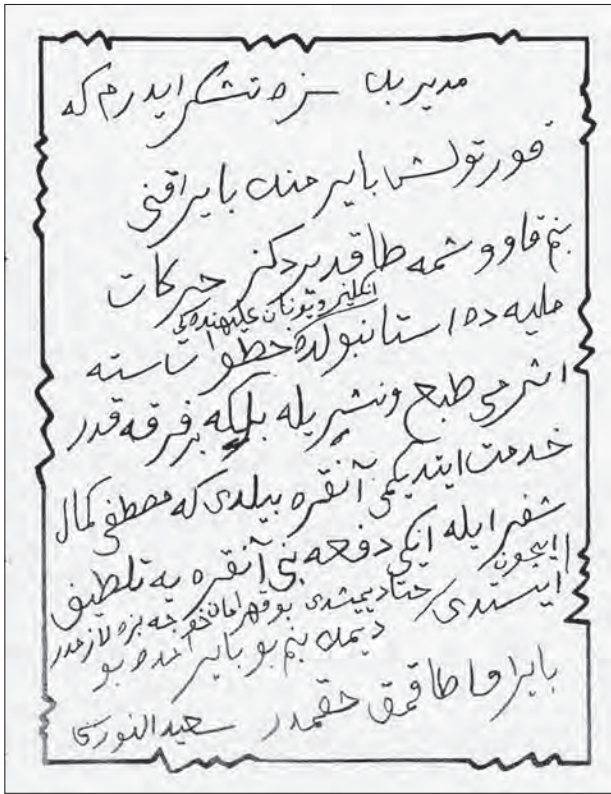 مدير بك سزه تشكر ايدرم كه
قورتولش بايرامنك بايراقنى
بنم قاووشمه طاقديرديكز حركات
انكليز و يونان عليهنده كى
مليه ده استانبولده خطوات سته
اثرمى طبع و نشريله بلكه بر فرقه قدر
خدمت ايتديكمى آنقره بيلدى كه مصطفى كمال
شفر ايله ايكى دفعه بنى آنقره يه تلطيف
ايچون
ايستدى حتا ديمشدى بو قهرمان خواجه بزه لازمدر
ديمك بنم بو بايرامده بو
بايراقا طاقمق حقمدر سعيد النورسى